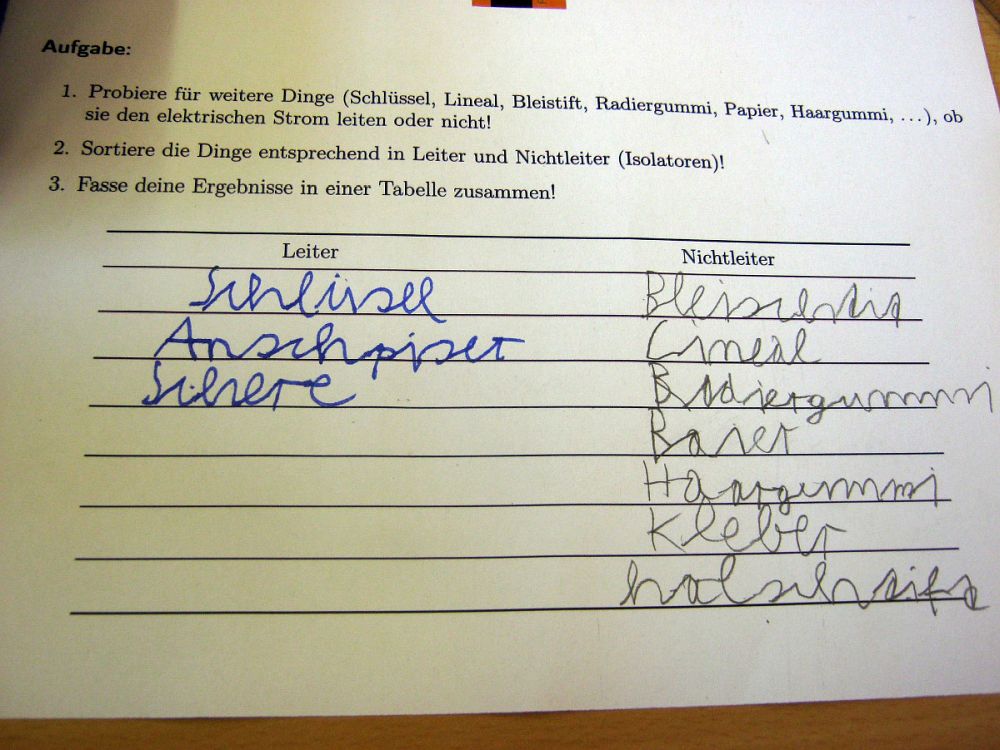 Aufgabe:
1. Probiere für weitere Dinge (Schlüssel, Lineal, Bleistift, Radiergummi, Papier, Haargummi, ...), ob
sie den elektrischen Strom leiten oder nicht!
2. Sortiere die Dinge entsprechend in Leiter und Nichtleiter (Isolatoren)!
3. Fasse deine Ergebnisse in einer Tabelle zusammen!
Leiter Nichtleiter
Schlüssel
Anschpiser Lineal
Schere Radiergummi
Haargummi
Kleber